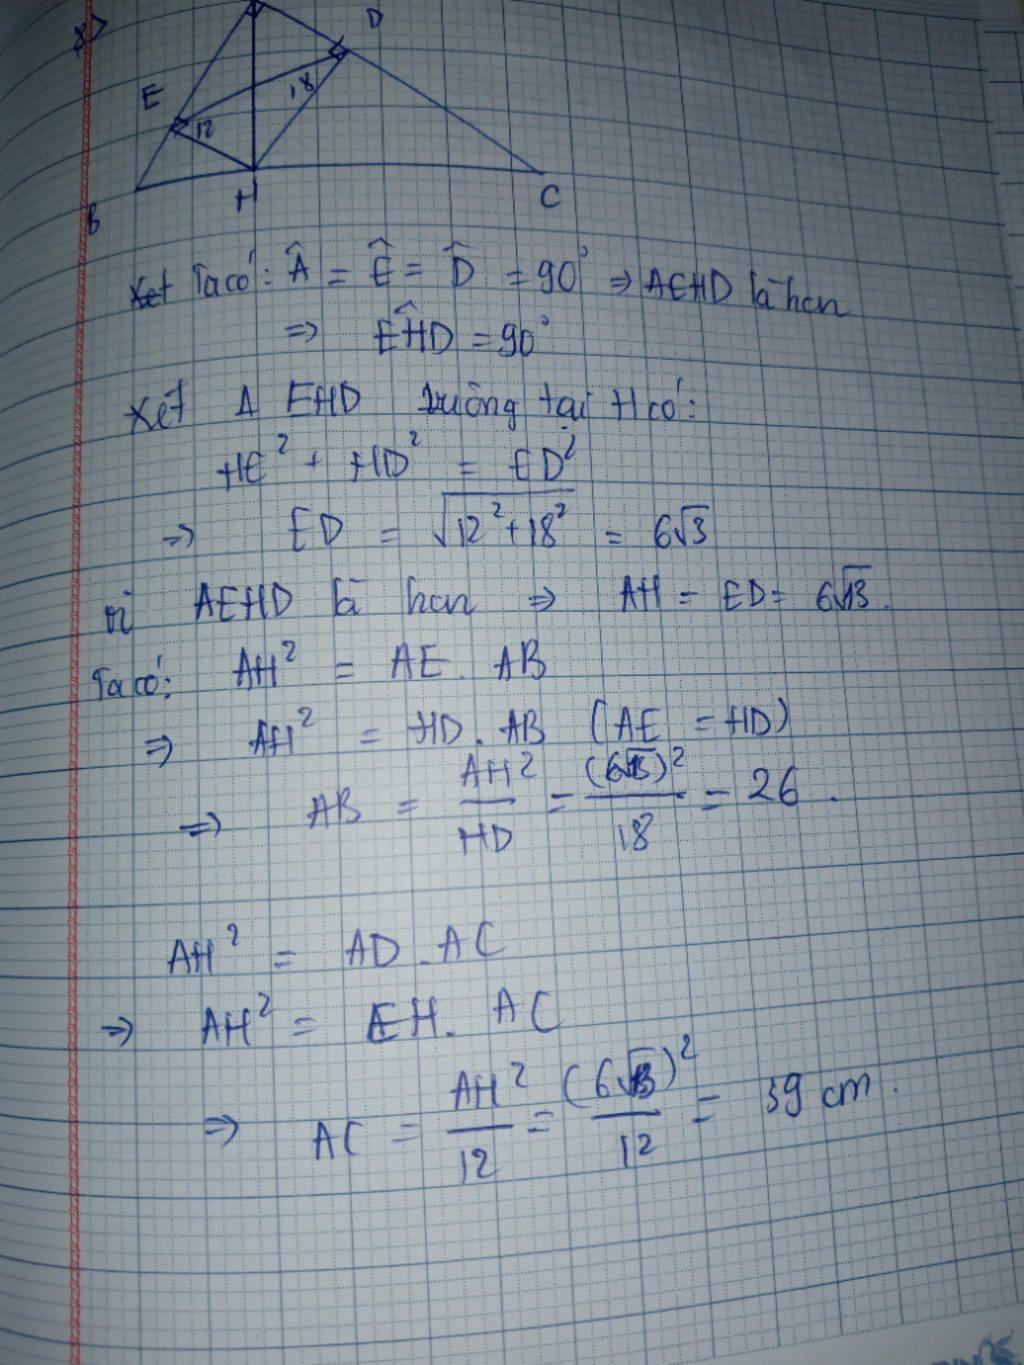 D
E
18
12
B
H
C
Xet Ta có: Â = Ê = D̂ = 90° => AEHD là hcn
=> EĤD = 90°
Xét Δ EHD vuông tại H có:
HE² + HD² = ED²
=> ED = √12² + 18² = 6√3
vì AEHD là hcn => AH = ED = 6√13.
Ta có: AH² = AE . AB
=> AH² = HD . AB (AE = HD)
=> AB = AH²/HD = (6√13)²/18 = 26 .
AH² = AD . AC
=> AH² = EH . AC
=> AC = AH²/12 = (6√13)²/12 = 39 cm .